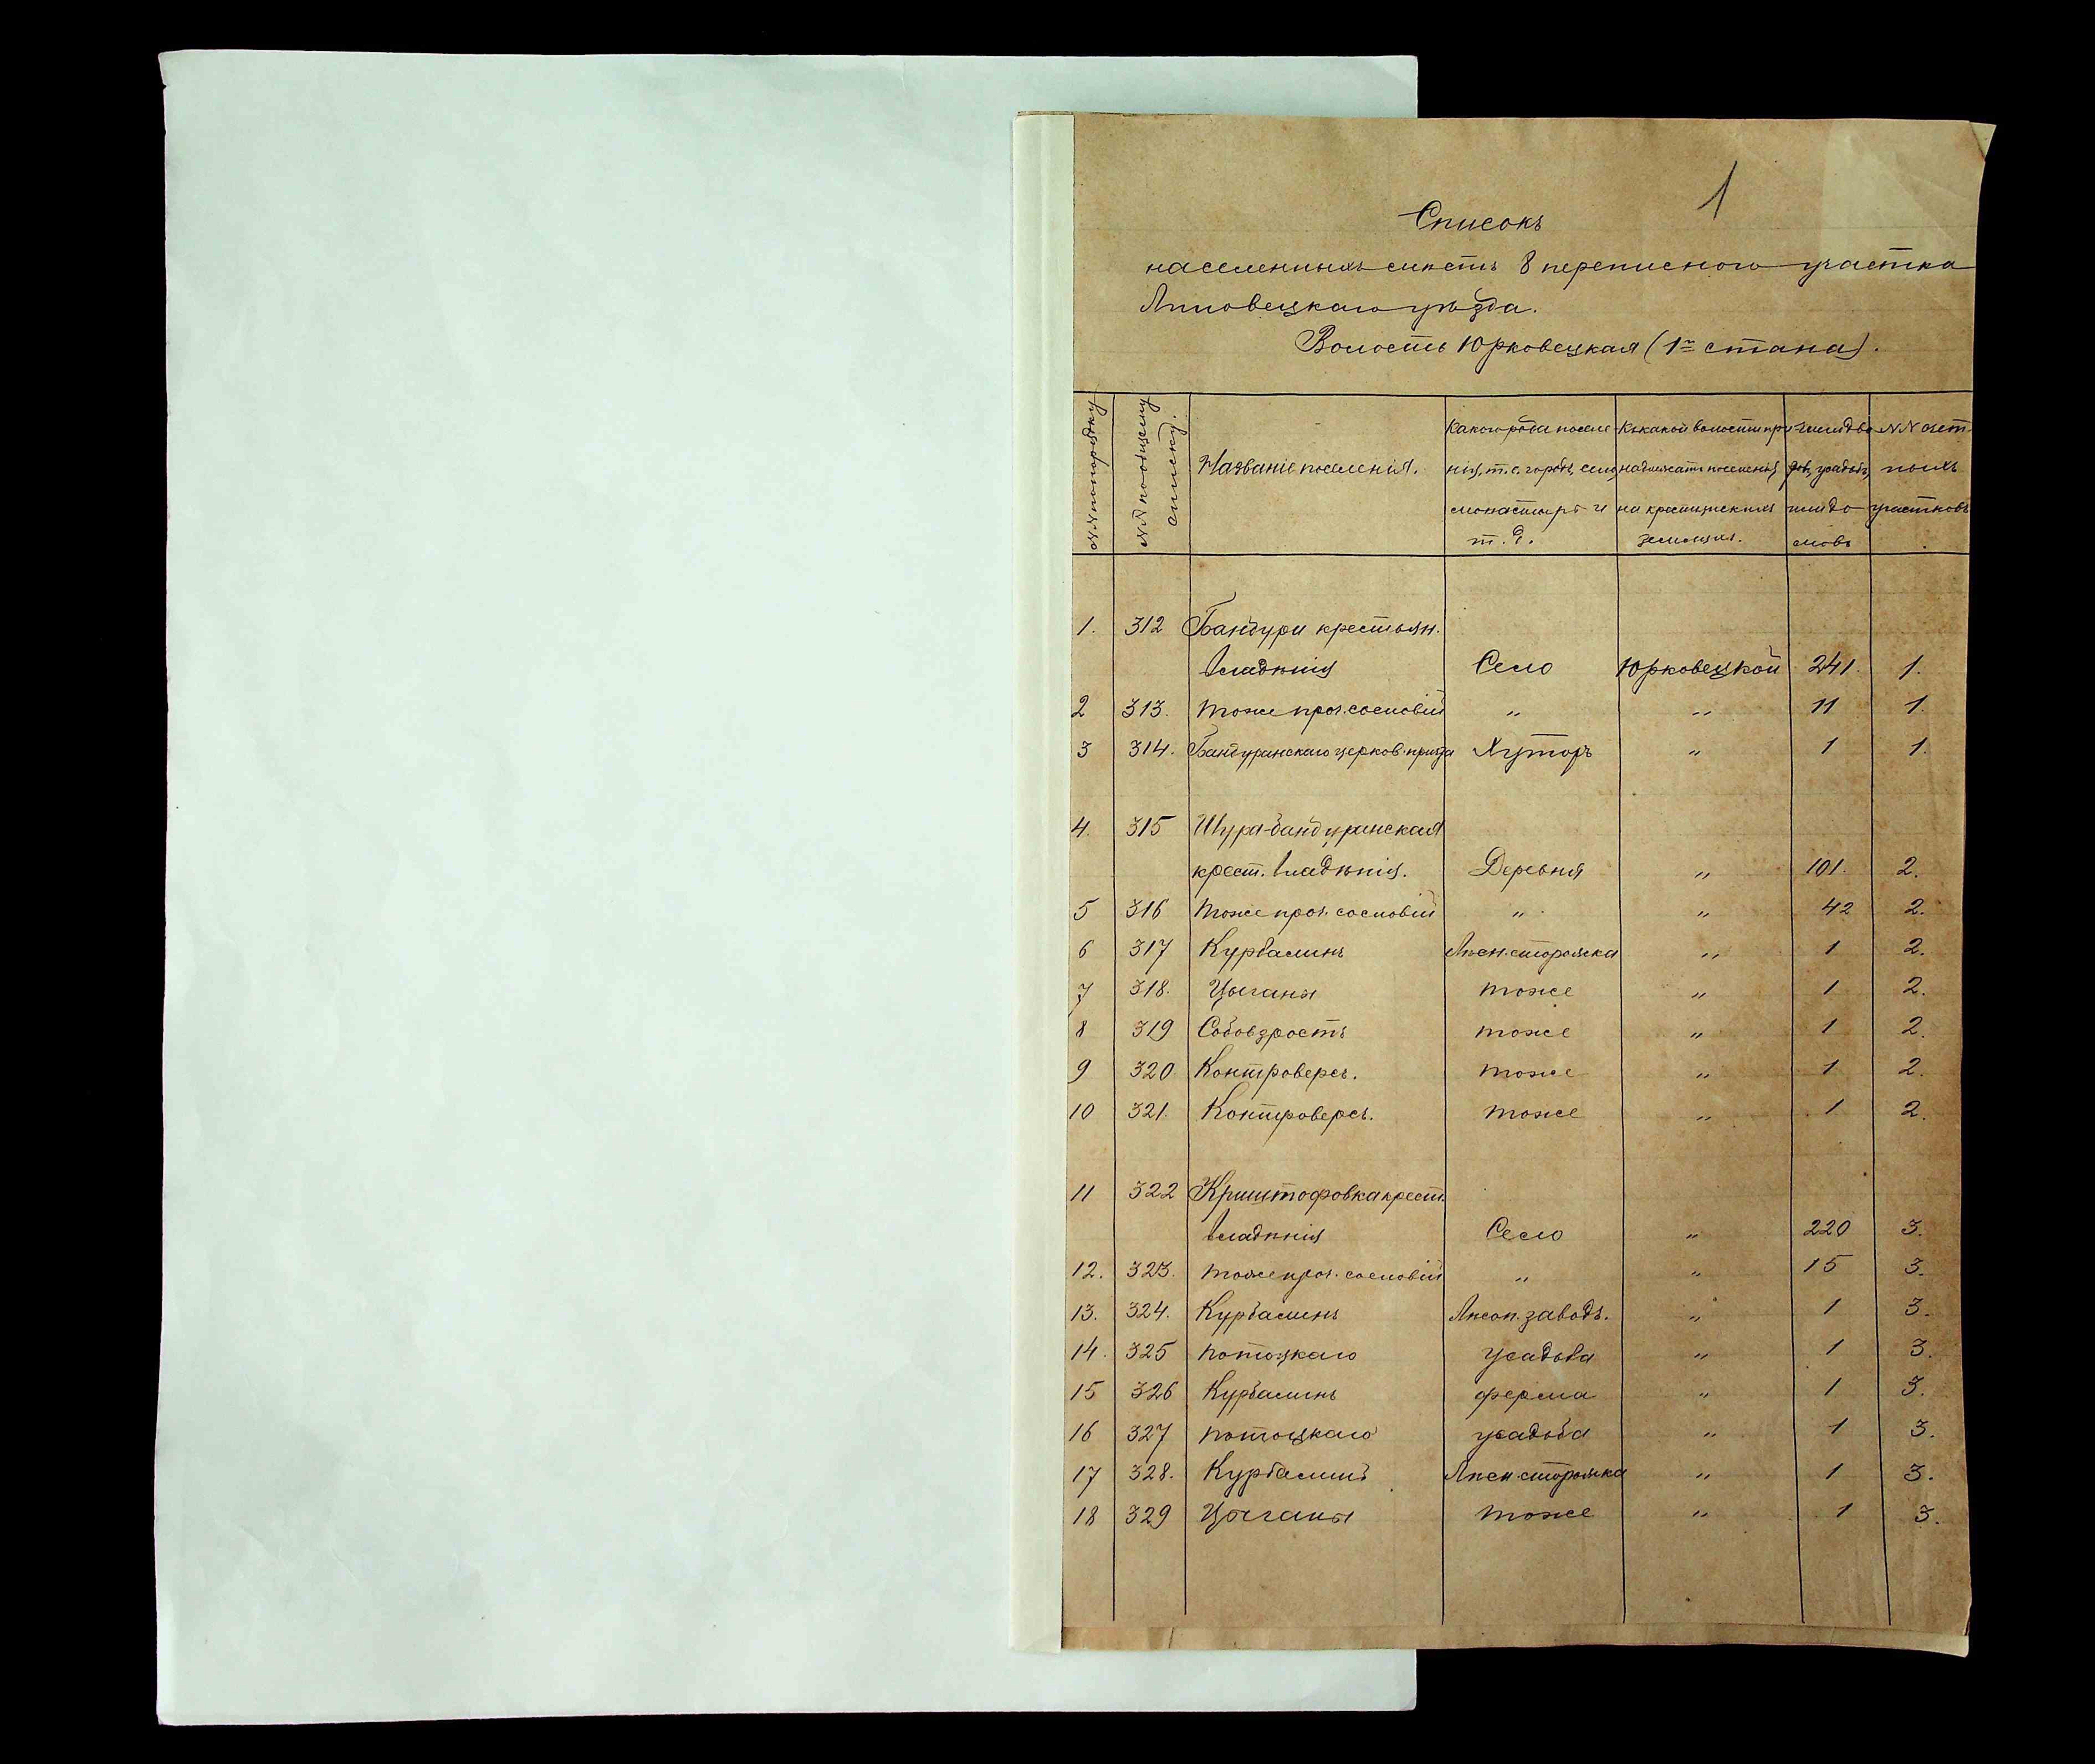 1
Списокъ
населенныхъ мѣстъ 8 переписного участка
Липовецкаго уѣзда.
Волость Юрковецкая (1го стана).
№№ по порядку
№№ по общему
списку.
Названіе поселенія.
Какого рода поселе-
нія, т. е. городъ, село,
монастырь и
т. д.
Къ какой волости при-
надлежатъ поселенія
на крестьянскихъ
земляхъ.
Число дво-
ровъ, усадьбъ,
или до-
мовъ
№№ счет-
ныхъ
участковъ
1. 312 Бандури крестьян.
владѣнія Село Юрковецкой 241. 1.
2 313. тоже проч. сословій „ „ 11 1.
3 314. Бандуринскаго церков. причта Хуторъ „ 1 1.
4. 315 Шура-бандуринская
крест. владѣнія. Деревня „ 101. 2.
5 316 тоже проч. сословій „ „ 42 2.
6 317 Курбалинъ Лѣсн. сторожка „ 1 2.
7 318. Цыганы тоже „ 1 2.
8 319 тоже „ 1 2.
9 320 Контроверсъ. тоже „ 1 2.
10 321. Контроверсъ. тоже „ 1 2.
11 322 Криштофовка крест.
владѣнія Село „ 220 3.
12. 323. тоже проч. сословій „ „ 15 3.
13. 324. Курбалинъ Лѣсоп. заводъ. „ 1 3.
14. 325 Потоцкаго усадьба „ 1 3.
15 326 Курбалинъ ферма „ 1 3.
16 327 Потоцкаго усадьба „ 1 3.
17 328. Курбалинъ Лѣсн. сторожка „ 1 3.
18 329 Цыганы тоже „ 1 3.